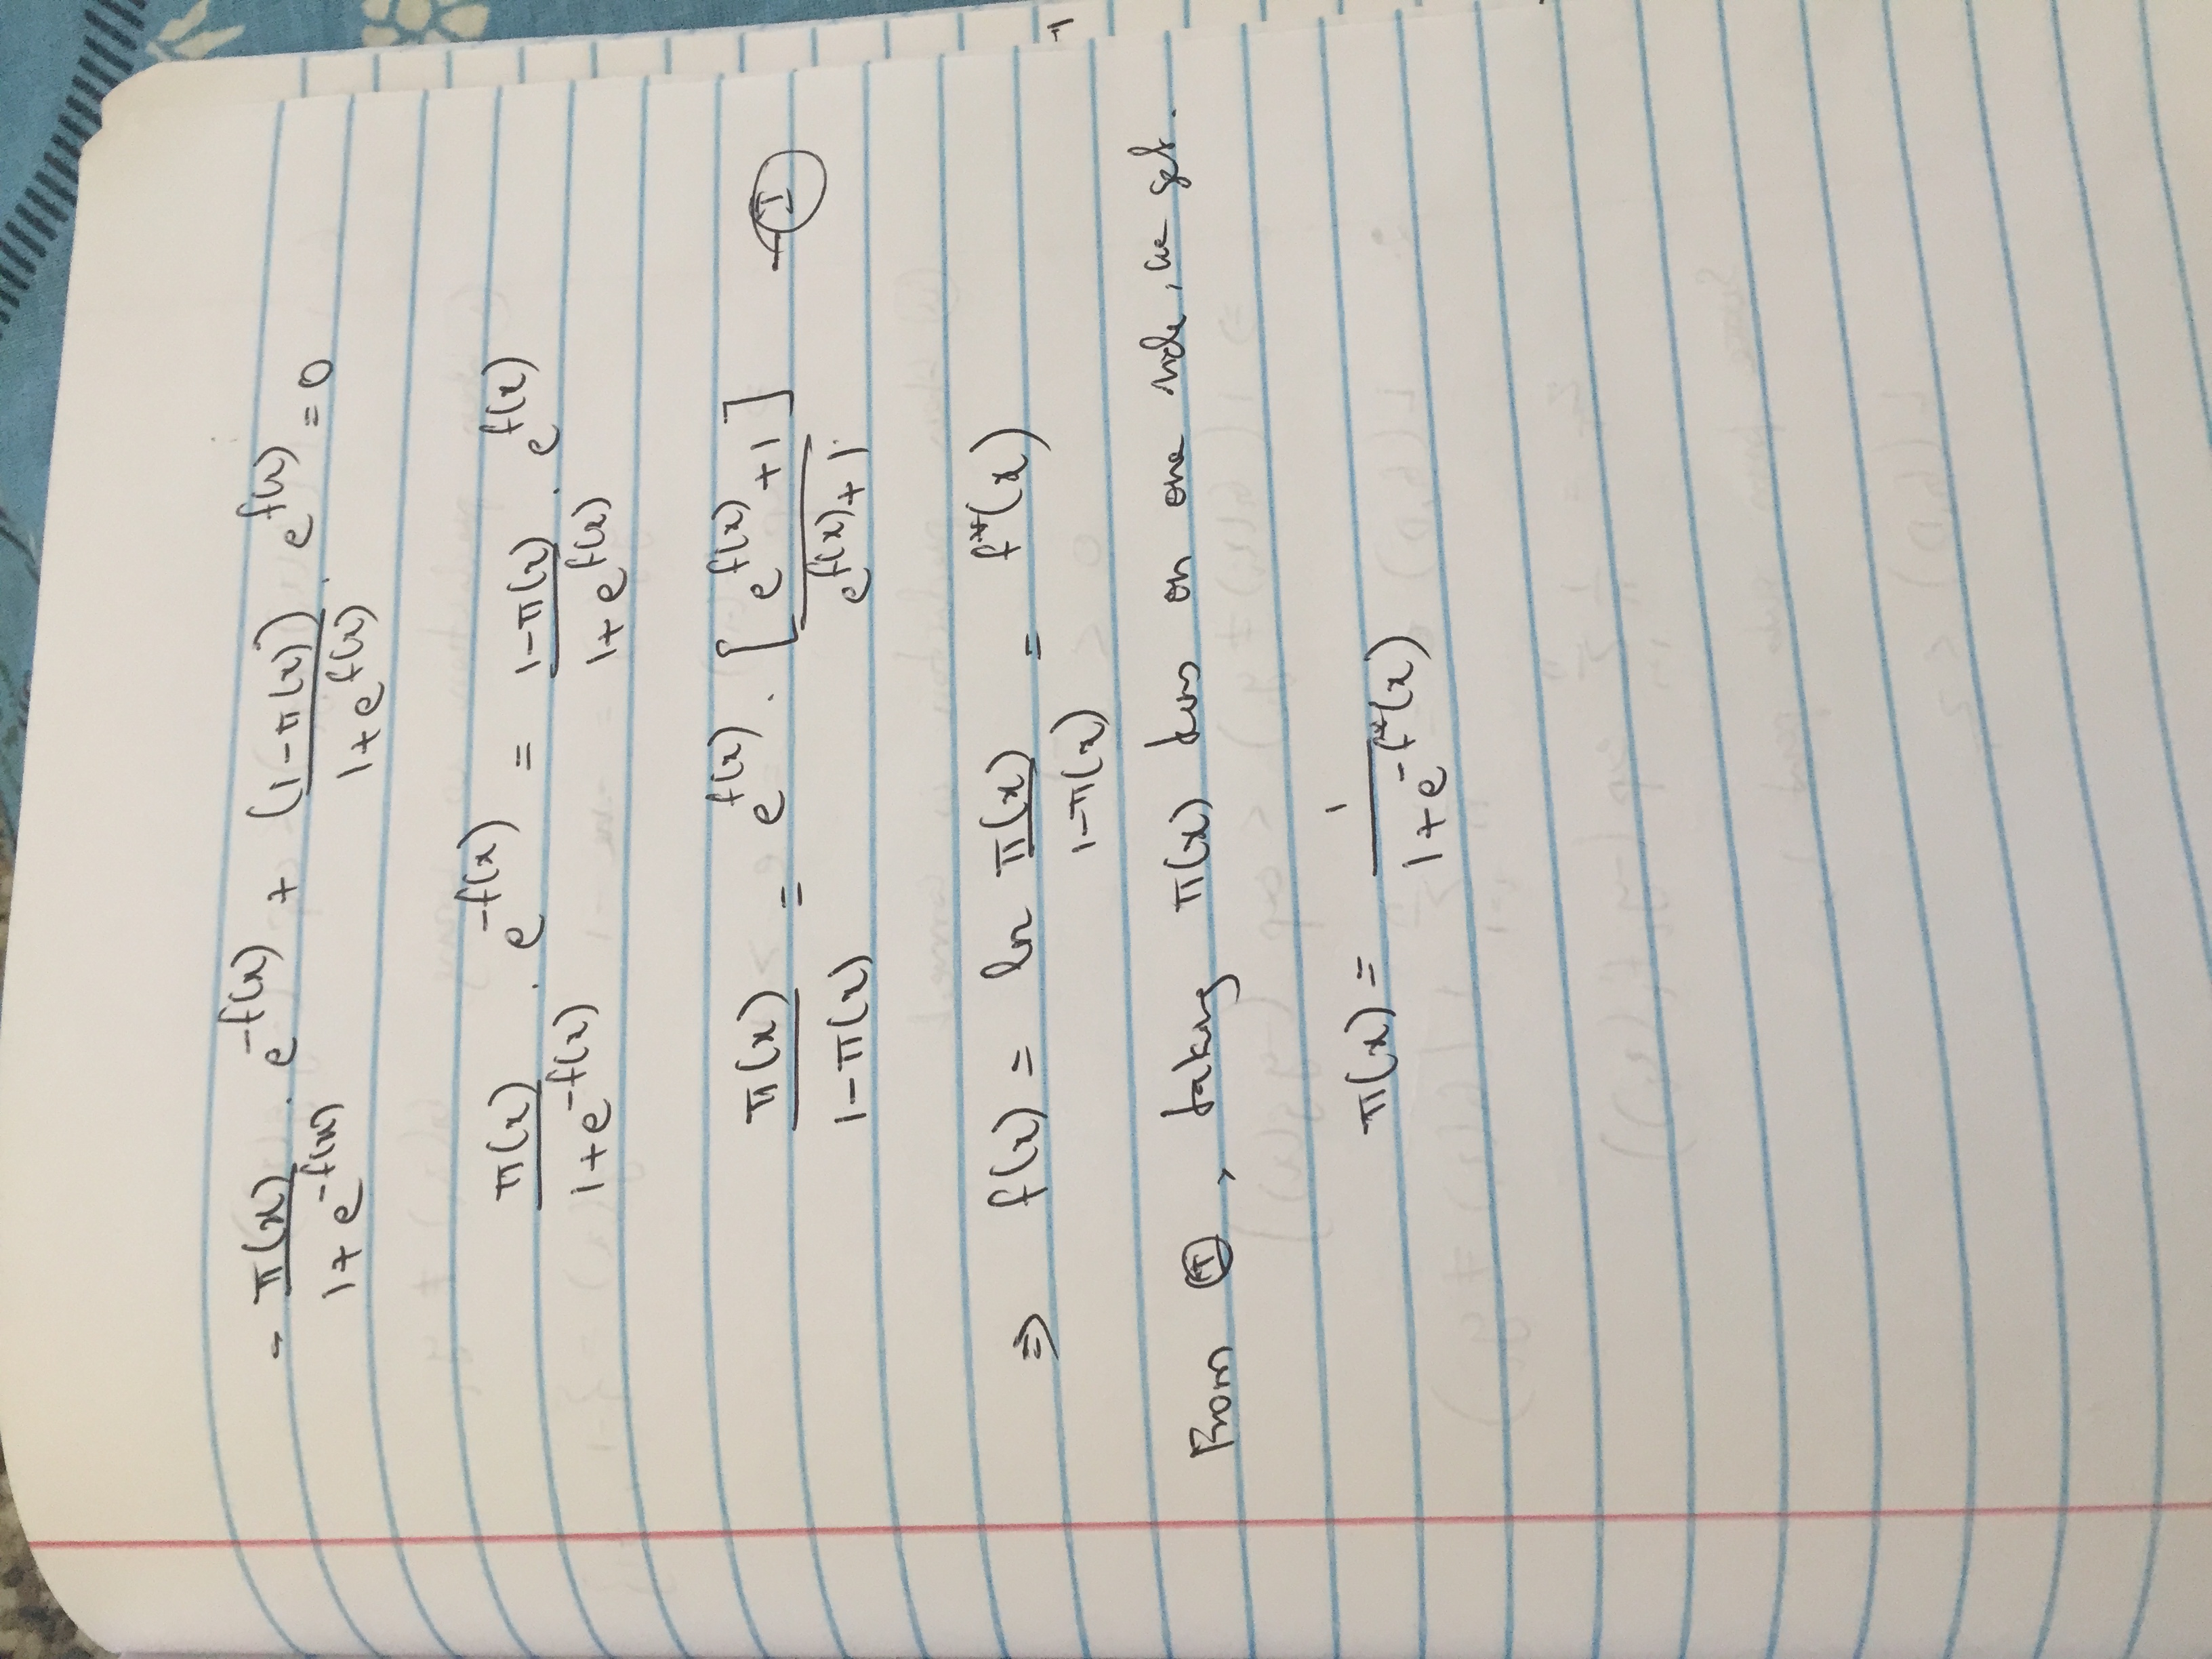 - π(x)/(1+e^{-f(x)}) . e^{-f(x)} + (1-π(x))/(1+e^{f(x)}) . e^{f(x)} = 0
π(x)/(1+e^{-f(x)}) . e^{-f(x)} = 1-π(x)/(1+e^{f(x)}) . e^{f(x)}
π(x)/(1-π(x)) = e^{f(x)} . [e^{f(x)}+1]/(e^{f(x)}+1) — Ⓘ
⇒ f(x) = ln π(x)/(1-π(x)) = f*(x)
From Ⓘ, taking π(x) terms on one side, we get.
π(x) = 1/(1+e^{-f*(x)})